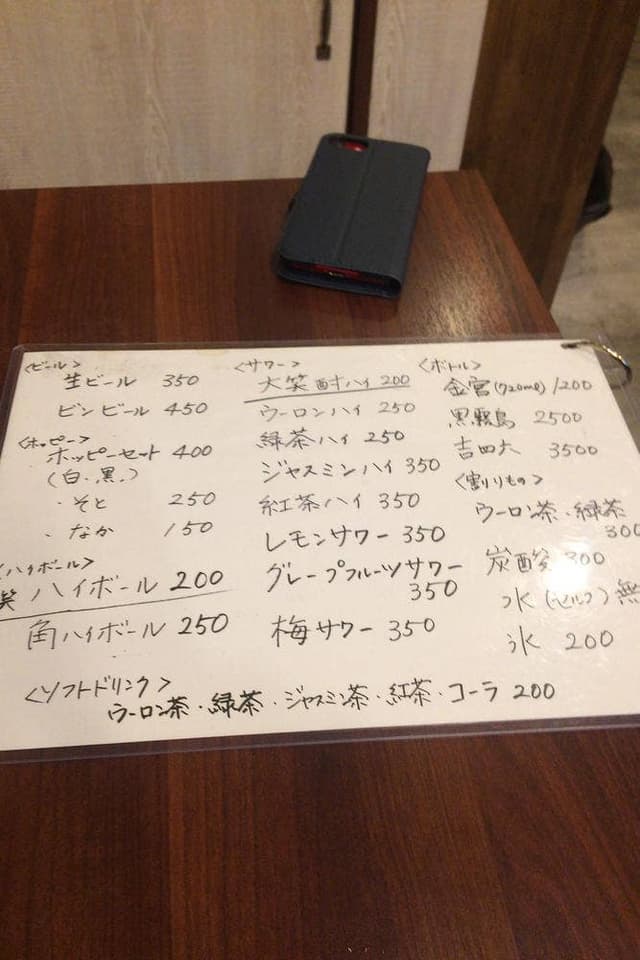 <ビール>
生ビール 350
ビンビール 450
<ホッピー>
ホッピーセット 400
(白.黒.)
・そと 250
・なか 150
<ハイボール>
笑 ハイボール 200
角ハイボール 250
<サワー>
大笑 酎ハイ 200
ウーロンハイ 250
緑茶ハイ 250
ジャスミンハイ 350
紅茶ハイ 350
レモンサワー 350
グレープフルーツサワー
350
梅サワー 350
<ボトル>
金宮(720ml) 1200
黒霧島 2500
吉四六 3500
<割りもの>
ウーロン茶・緑茶
300
炭酸 300
水(セルフ)無
氷 200
<ソフトドリンク>
ウーロン茶・緑茶・ジャスミン茶・紅茶・コーラ 200